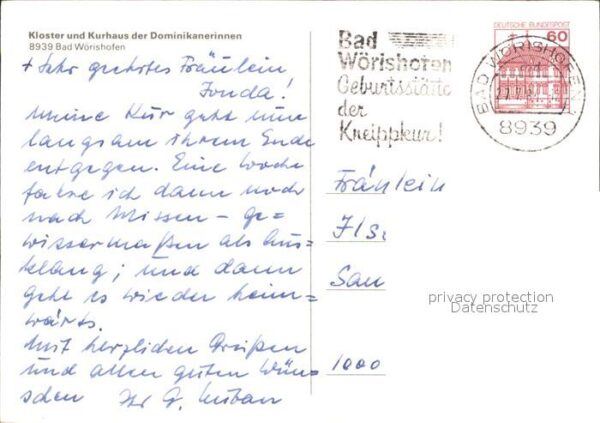 Kloster und Kurhaus der Dominikanerinnen
8939 Bad Wörishofen
+ Sehr geehrtes Fräulein
Jonda!
Meine Kur geht nun
langsam ihrem Ende
entgegen. Eine Woche
fahre ich dann noch
nach Missen – ge=
wissermaßen als Aus=
klang; und dann
geht es wieder heim=
wärts.
Mit herzlichen Grüßen
und allen guten Wün=
schen Ihr G.
Bad
Wörishofen
Geburtsstätte
der
Kneippkur!
DEUTSCHE BUNDESPOST
60
BAD WÖRISHOFEN 1
8939
Fräulein
San
1000
privacy protection
Datenschutz